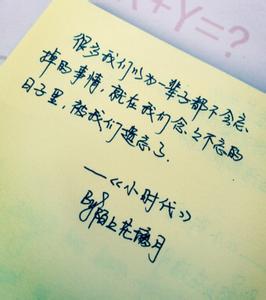 X+Y=?
很多我们以为一辈子都不会忘
掉的事情，就在我们念念不忘的
日子里，被我们遗忘了．
——《小时代》
By 陌上花开月